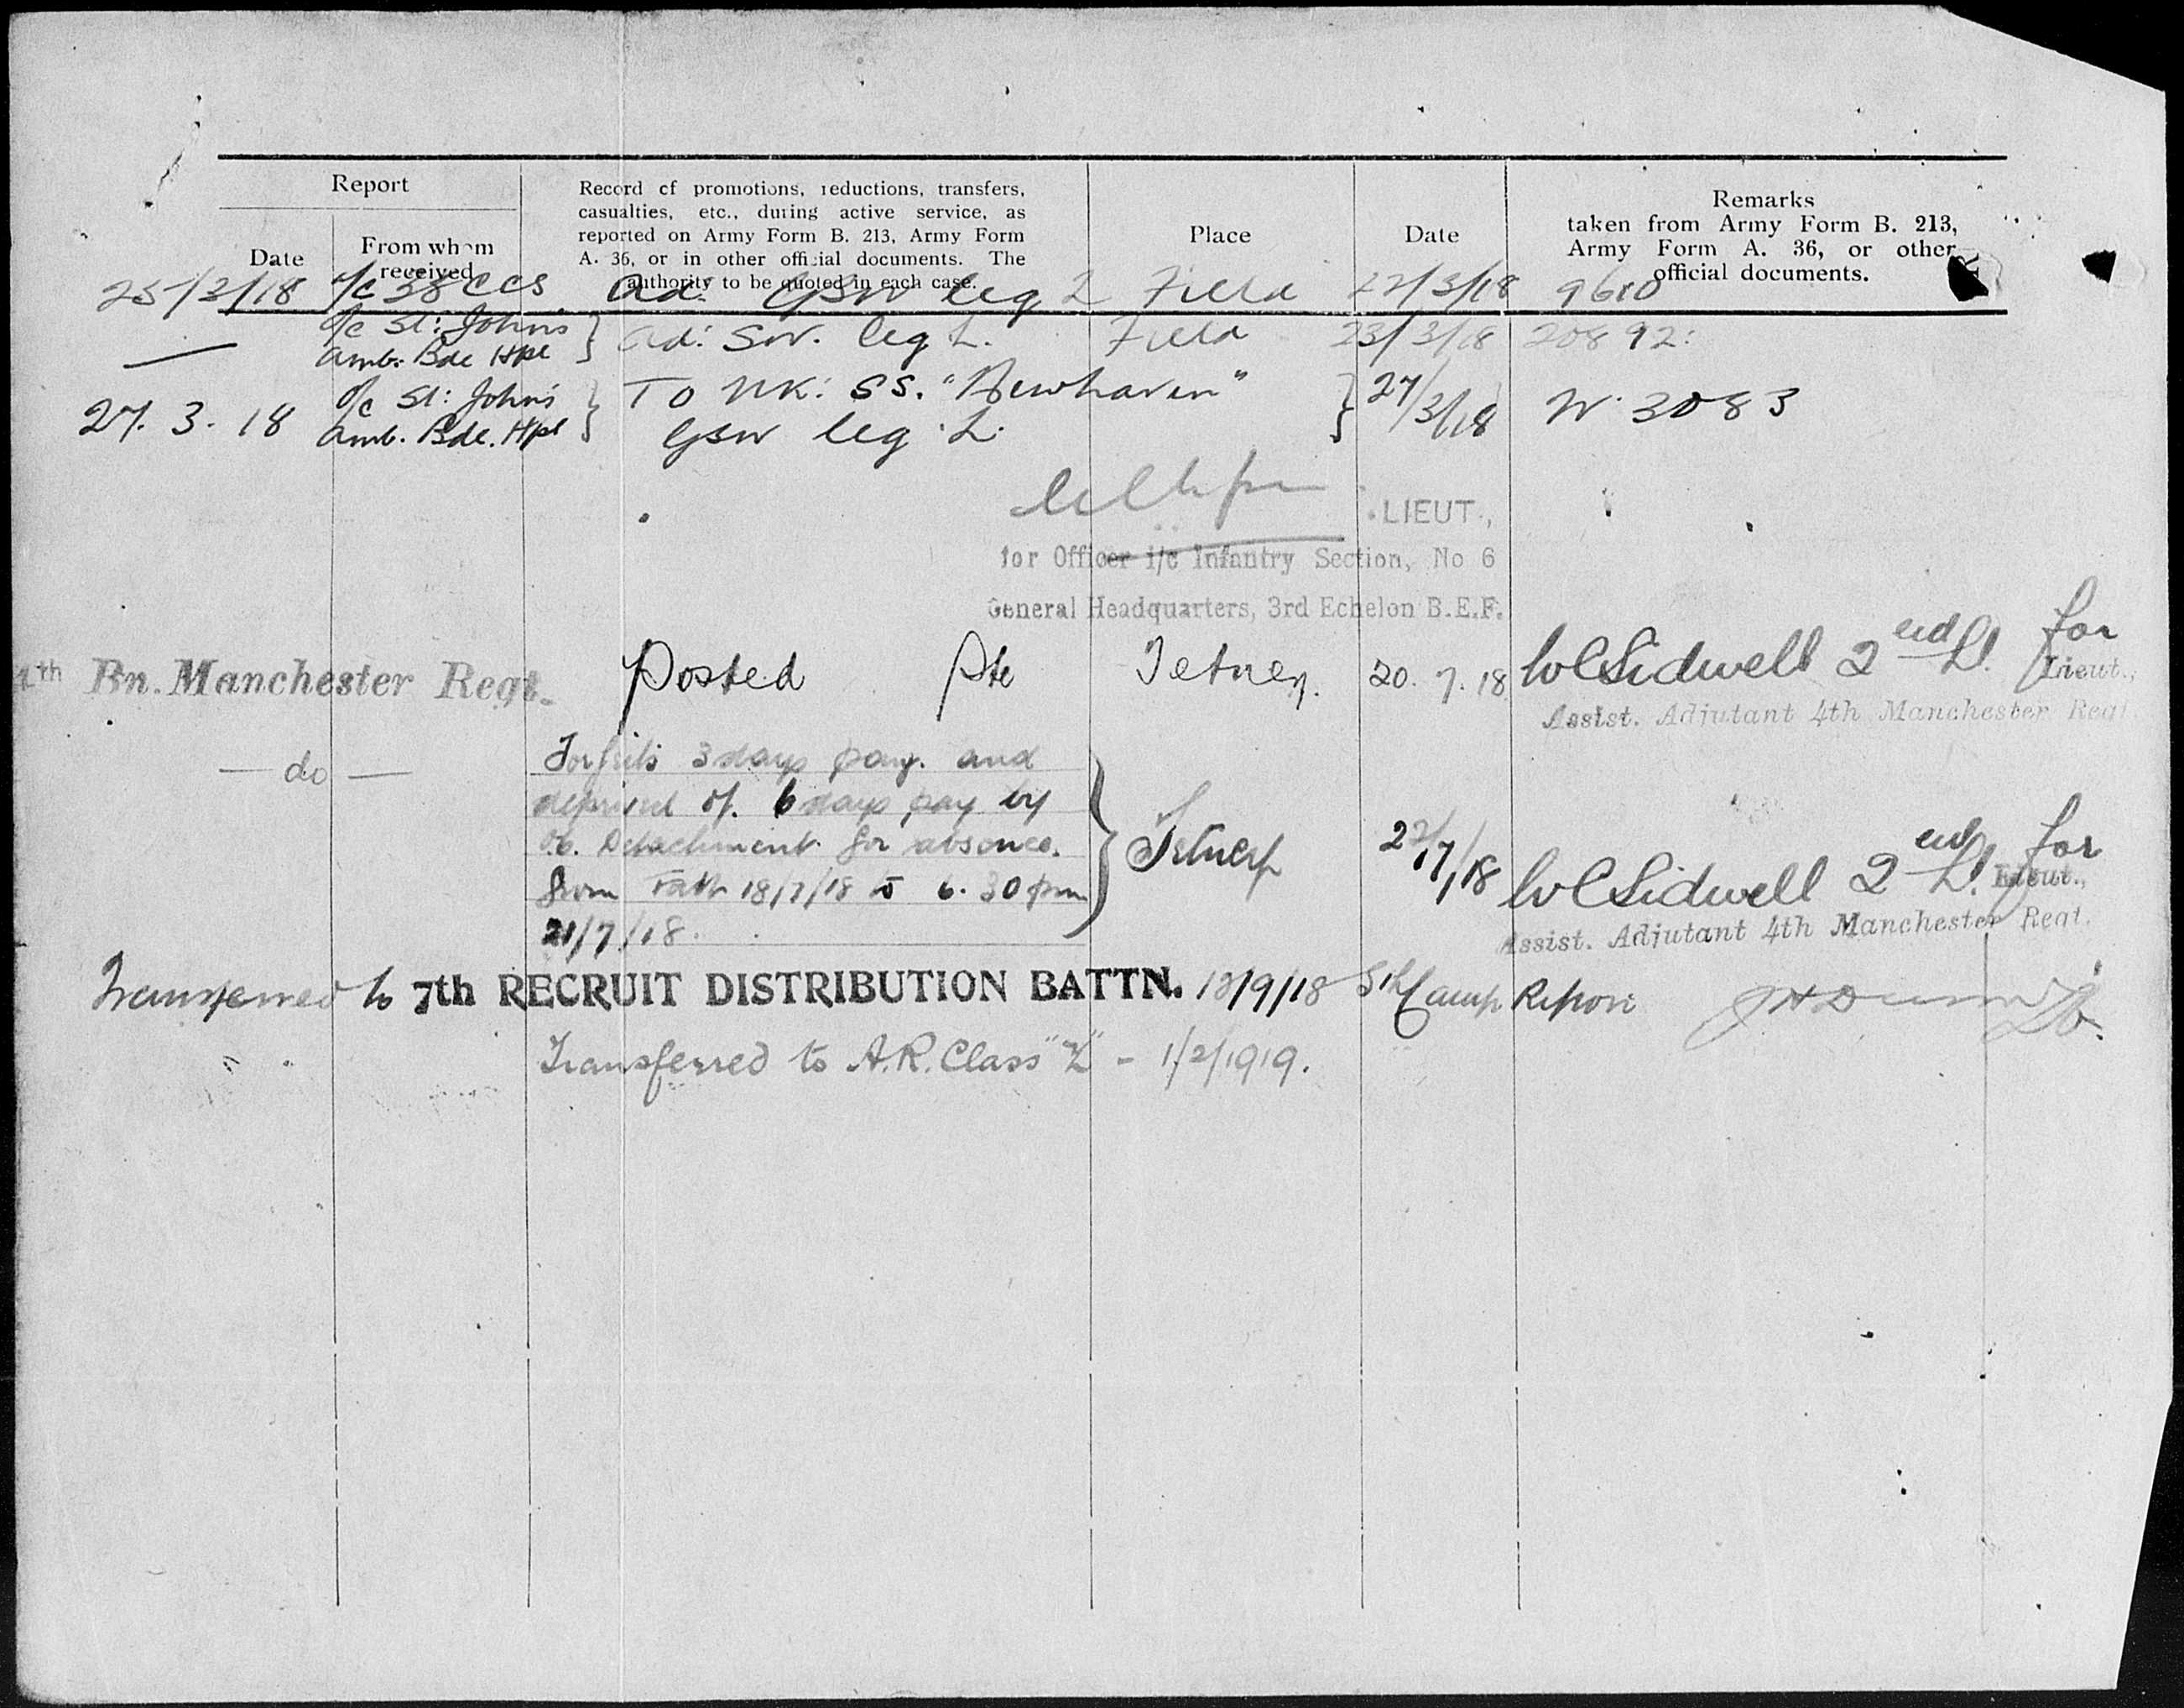 Report
Date
From whom received
Record of promotions, reductions, transfers,
casualties, etc., during active service, as
reported on Army Form B. 213, Army Form
A. 36, or in other official documents. The
authority to be quoted in each case.
Place
Date
Remarks
taken from Army Form B. 213,
Army Form A. 36, or other
official documents.
25/3/18 O/c 38 CCS ad: GSW leg L Field 22/3/18
— O/c St: John's
Amb. Bde Hpl } ad: SW. leg L. Field 23/3/18 20892:
27.3.18 O/c St: John's
Amb. Bde. Hpl } To UK: SS. "Newhaven" } 27/3/18 W. 3083
GSW leg L.
LIEUT.,
for Officer i/c Infantry Section, No 6
General Headquarters, 3rd Echelon B.E.F.
4th Bn. Manchester Regt. Posted Pte Tetney. 20.7.18 WCSidwell 2nd Lt. for
Lieut.,
Assist. Adjutant 4th Manchester Regt.
— do — Forfeits 3 days pay. and
deprived of. 6 days pay by
O.C. Detachment for absence.
from Tatt 18/7/18 to 6.30 pm
21/7/18. } Tetney 22/7/18 WCSidwell 2nd Lt. for
Lieut.,
Assist. Adjutant 4th Manchester Regt.
Transferred to 7th RECRUIT DISTRIBUTION BATTN. 13/9/18 Camp Report
Transferred to A.R. Class "Z" - 1/2/1919.